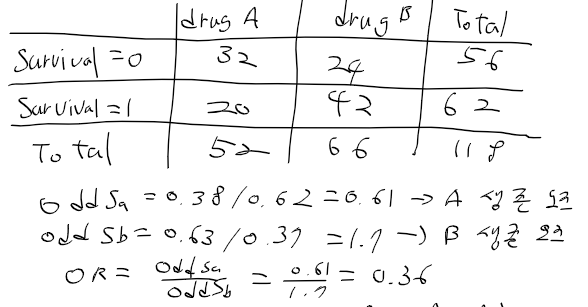 drug A drug B Total
Survival=0 32 24 56
Survival=1 20 42 62
Total 52 66 118
odd Sa = 0.38/0.62 = 0.61 → A 생존 오즈
odd Sb = 0.63/0.37 = 1.7 → B 생존 오즈
OR = oddSa/oddSb = 0.61/1.7 = 0.36